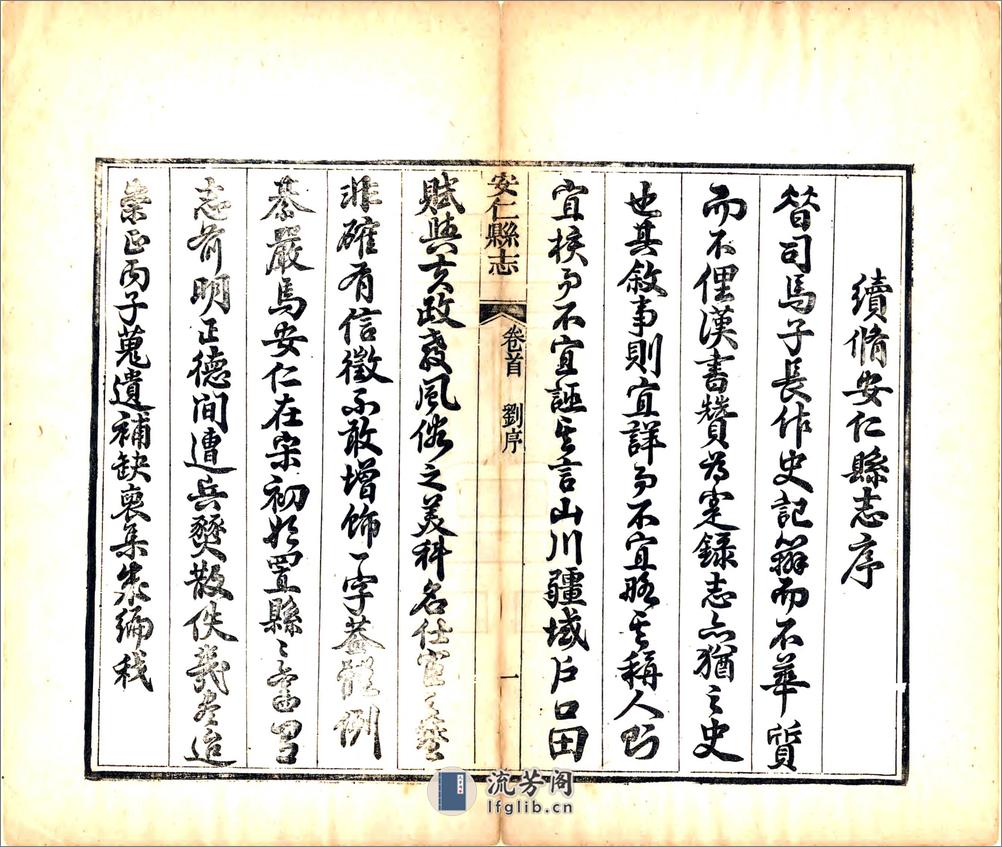 續脩安仁縣志序
昔司馬子長作史記辯而不華質
而不俚漢書贊為寔録志亦猶之史
也其敘事則宜詳而不宜略其稱人則
宜核而不宜誣其言山川疆域戶口田
安仁縣志 卷首 劉序 一
賦與夫政教風俗之美科名仕宦之盛
非確有信徵不敢增飾一字蓋體例
綦嚴焉安仁在宋初始置縣
志前明正德間遭兵燹散佚幾盡迨
崇正丙子蒐遺補缺裒集成編我
流芳阁
lfglib.cn